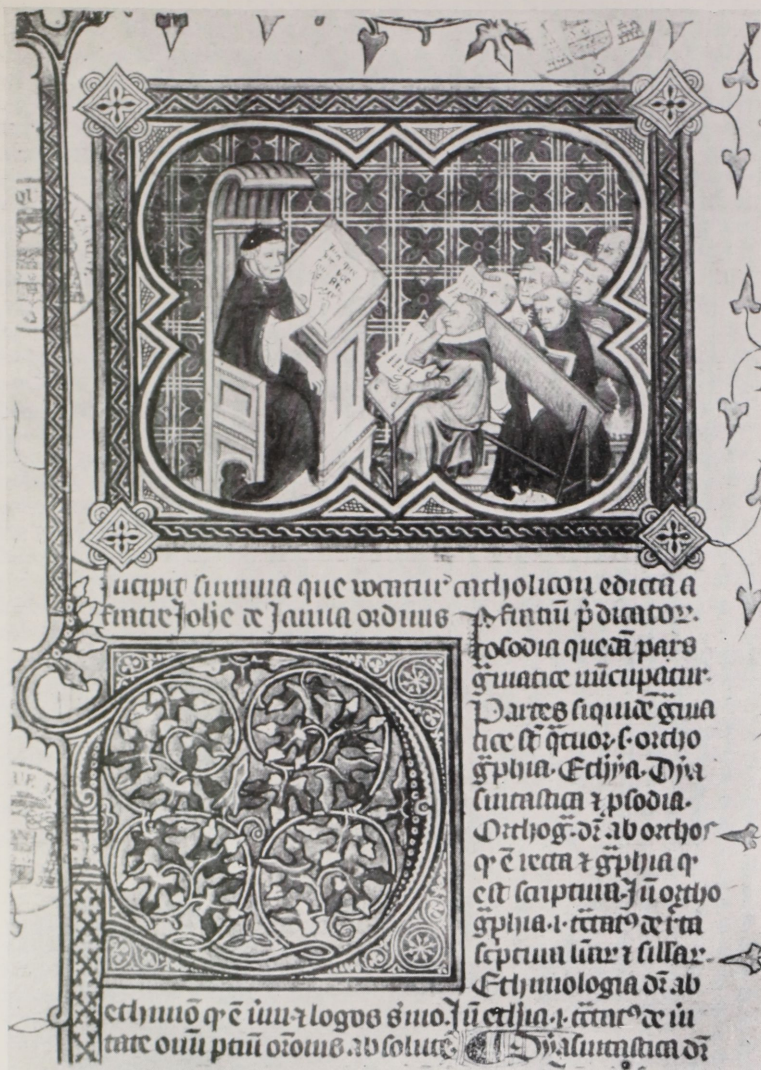 Incipit summa que vocatur catholicon edicta a
fratre Johe de Janua ordinis fratrum p̄dicator̄.
Prosodia quedā pars
gͣmatice nūcupatur.
Partes siquidē gͣma
tice st̄ qͣtuor .s. ortho
gͣphia. Ethȳa. Dẏa
sintastica ⁊ ꝓsodia.
Orthog. dr̄ ab orthos
qͥ ē recta ⁊ gͣphia qͥ
est scriptura. Jn̄ ortho
gͣphia .i. tͣctatꝰ de rͨta
scͥptura
Ethimologia dr̄ ab
ethimō qͥ ē ⁊ logos s̓mo. Jn̄ ethīa .i. tͣctatꝰ de
tate oīuu absolute. Dẏasintastica dr̄